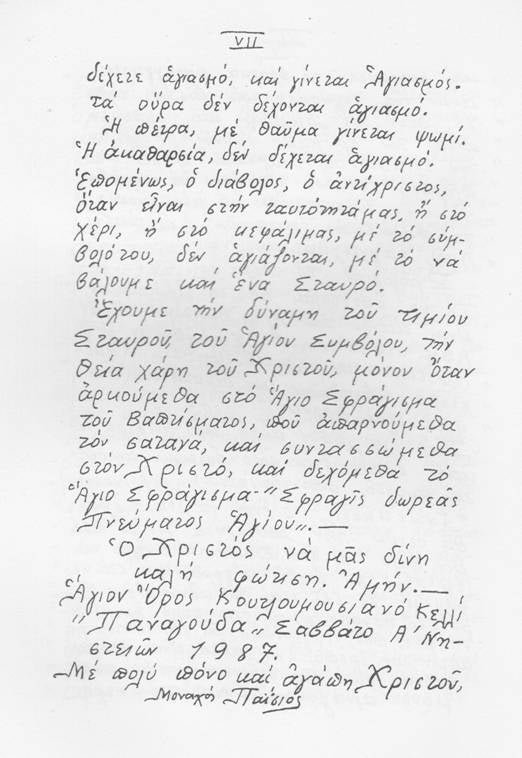 VII
δέχεται ἁγιασμό, καί γίνεται Ἁγιασμός.
τά οὖρα δέν δέχονται ἁγιασμό.
Ἡ πέτρα, μέ θαῦμα γίνεται ψωμί.
Ἡ ἀκαθαρσία, δέν δέχεται ἁγιασμό.
Ἑπομένως, ὁ διάβολος, ὁ ἀντίχριστος,
ὅταν εἶναι στήν ταυτότητάμας, ἤ στό
χέρι, ἤ στό κεφάλιμας, μέ τό σύμ-
βολότου, δέν ἁγιάζονται, μέ τό νά
βάλουμε καί ἕνα Σταυρό.
Ἔχουμε τήν δύναμη τοῦ τιμίου
Σταυροῦ, τοῦ Ἁγίου Συμβόλου, τήν
θεία χάρη τοῦ Χριστοῦ, μόνον ὅταν
ἀρκούμεθα στό Ἅγιο Σφράγισμα
τοῦ Βαπτίσματος, πού ἀπαρνούμεθα
τόν σατανά, καί συντασσώμεθα
στόν Χριστό, καί δεχόμεθα τό
Ἅγιο Σφράγισμα-"Σφραγίς δωρεᾶς
Πνεύματος Ἁγίου".—
Ὁ Χριστός νά μᾶς δίνη
καλή φώτιση. Ἀμήν.—
Ἅγιον Ὄρος Κουτλουμουσιανό Κελλί
"Παναγούδα" Σαββάτο Α΄ Νη-
στειῶν 1987
Μέ πολύ πόνο καί ἀγάπη Χριστοῦ,
Μοναχός Παΐσιος